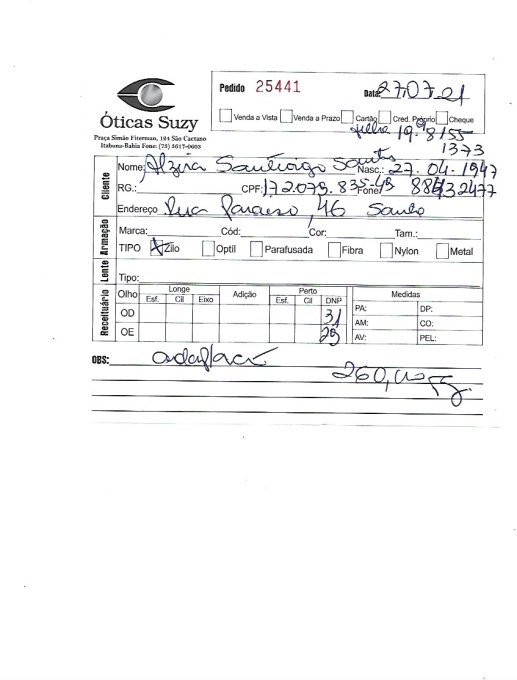 Pedido 25441
Data: 27.07.21
Óticas Suzy
Venda a Vista Venda a Prazo Cartão Cred. Próprio Cheque
Praça Simão Fiterman, 194 São Caetano
Itabuna-Bahia Fone: (73) 3617-0603
filha 8155
1373
Cliente
Nome: Alzira Santiago Santos Nasc.: 27.04.1947
RG.: CPF: 172.079.835-49 Fone:
Endereço Rua Paraiso, 46
Armação
Marca: Cód: Cor: Tam.:
TIPO X Zilo Optil Parafusada Fibra Nylon Metal
Lente
Tipo:
Receituário
Olho Longe Adição Perto DNP Medidas
Esf. Cil Eixo Esf. Cil
OD 31 PA: DP:
AM: CO:
OE 29 AV: PEL:
OBS:
260,00